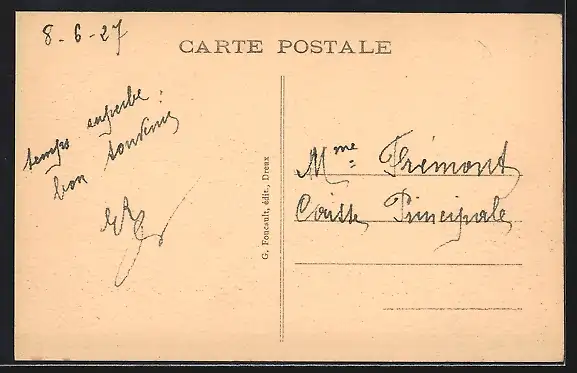 8-6-27
CARTE POSTALE
temps superbe:
bon souvenir
G. Foucault, édit., Dreux
Mme Frémont
Caisse Principale